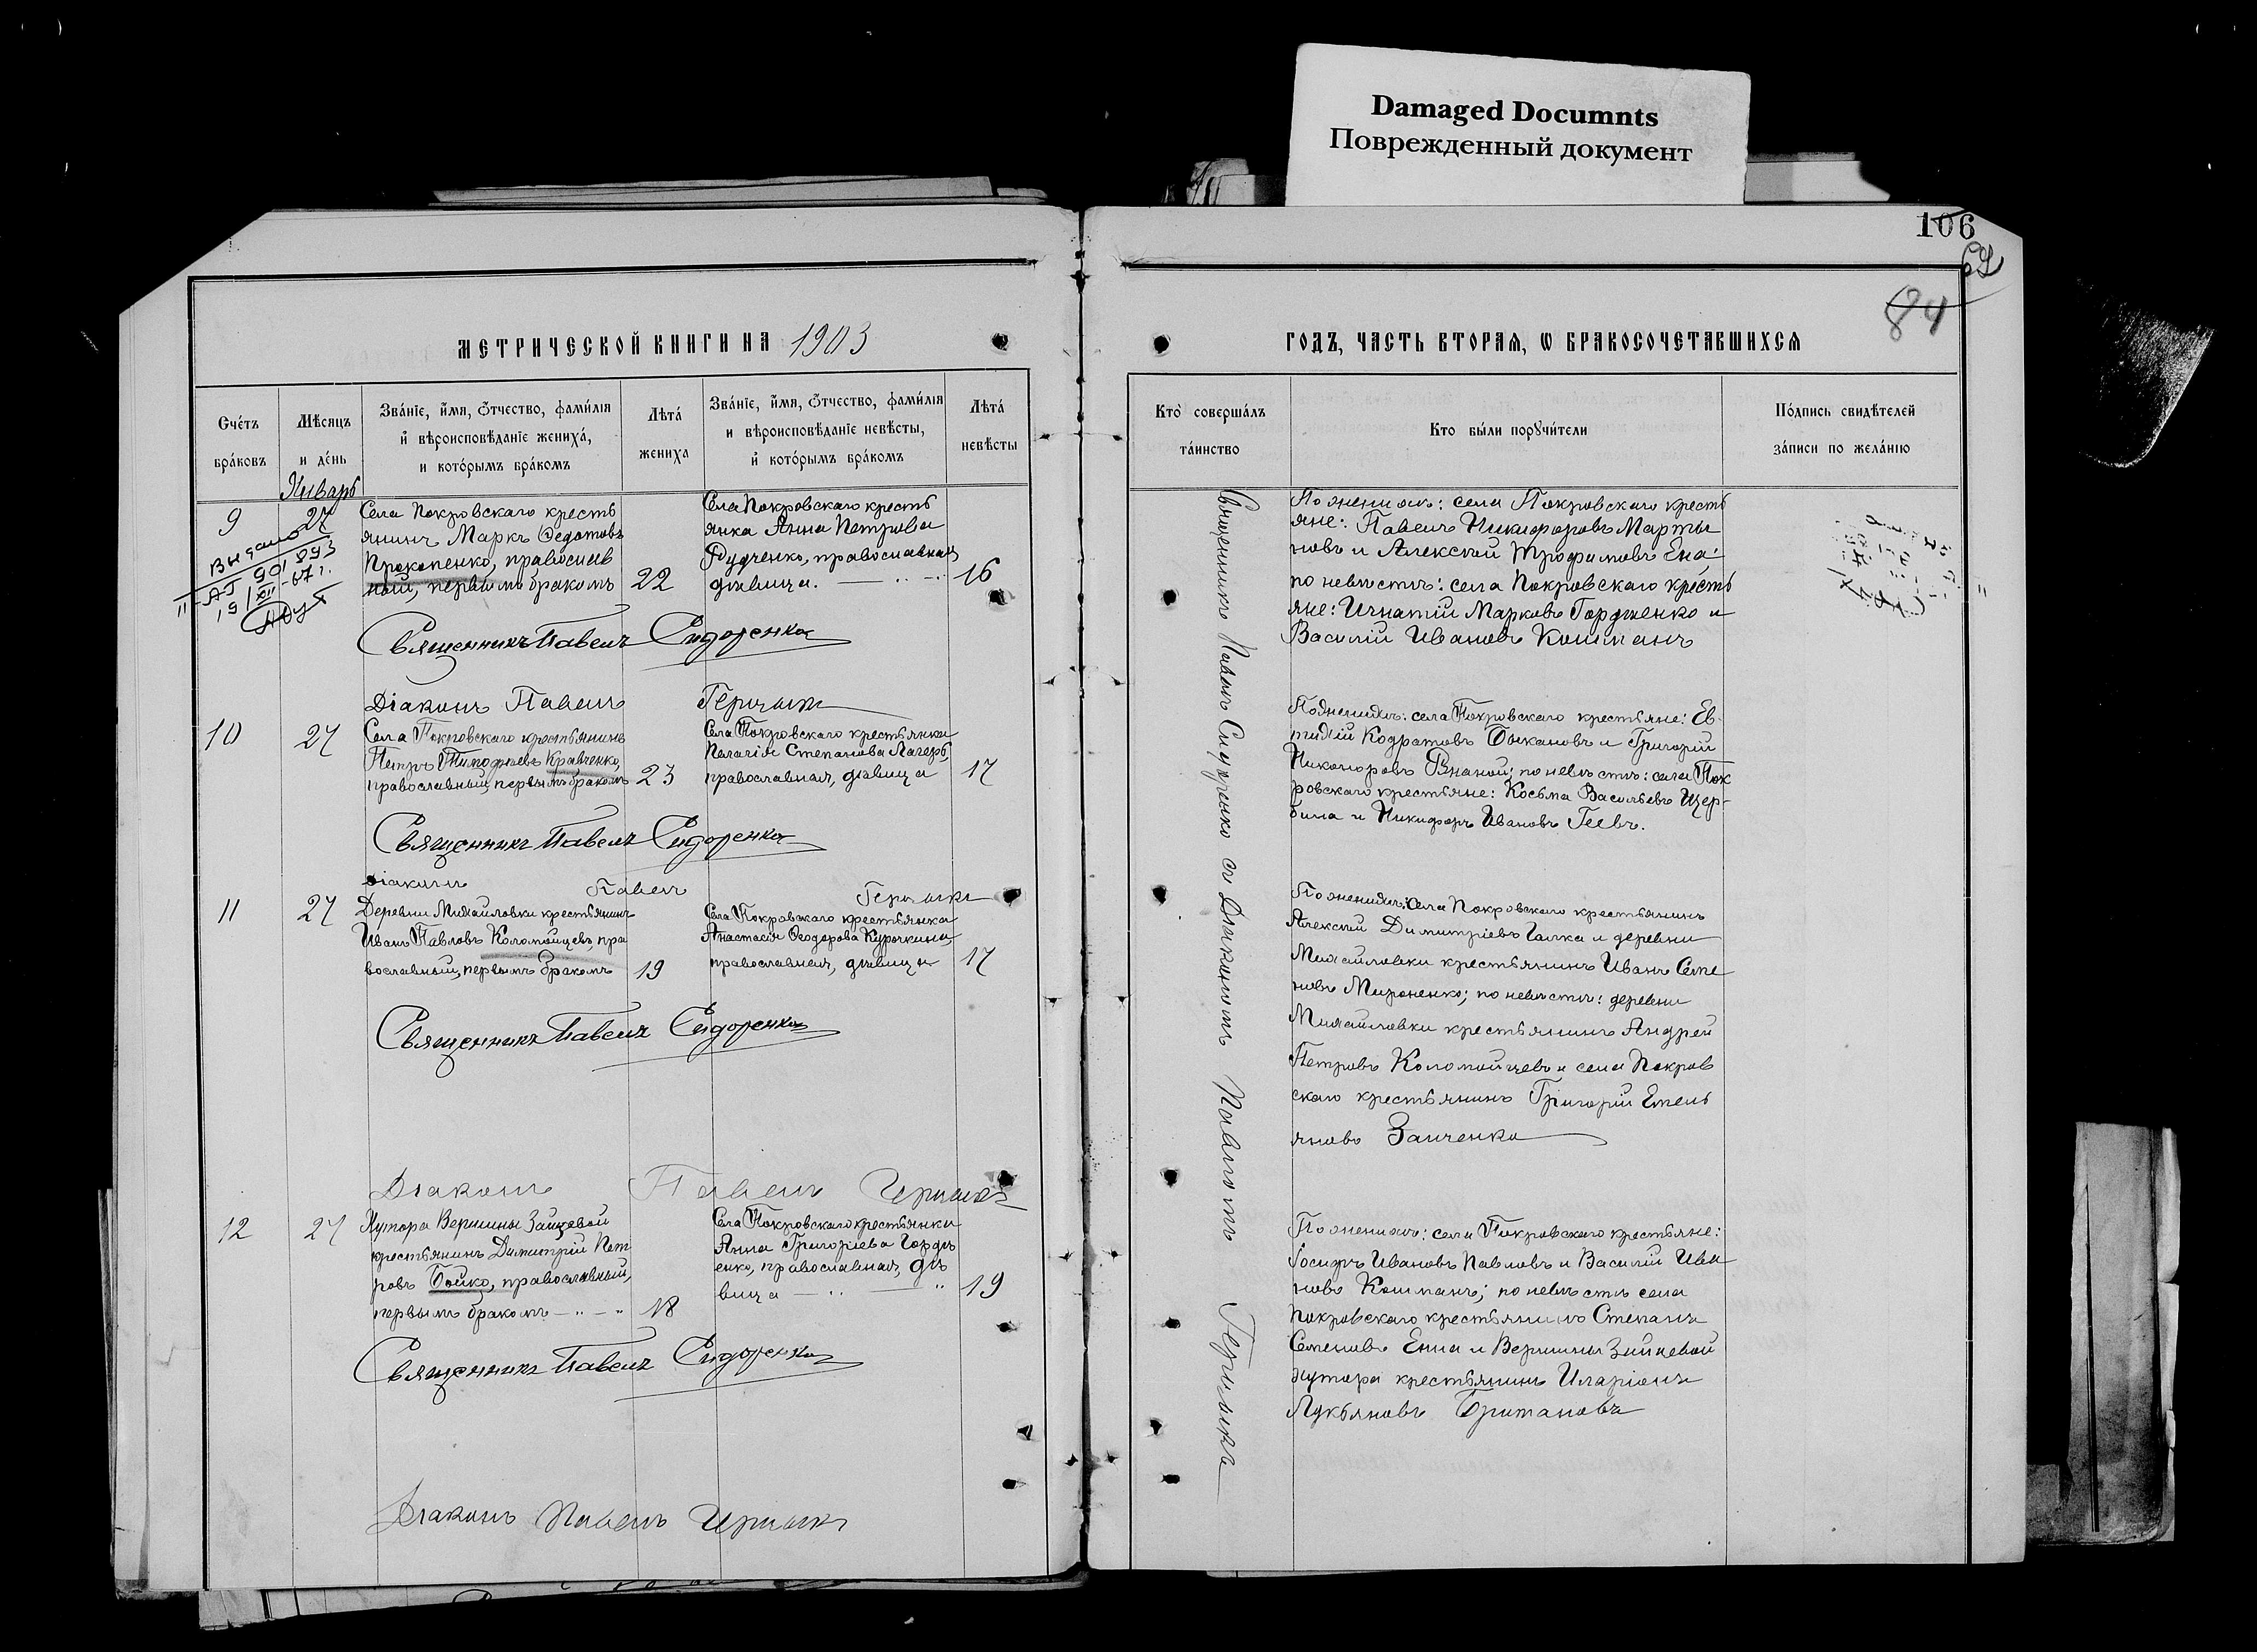 Damaged Documnts
Поврежденный документ
106
84
МЕТРИЧЕСКОЙ КНИГИ НА 1903
Счетъ браковъ
Мѣсяцъ и день
Званіе, имя, отчество, фамилія и вѣроисповѣданіе жениха, и которымъ бракомъ
Лѣта жениха
Званіе, имя, отчество, фамилія и вѣроисповѣданіе невѣсты, и которымъ бракомъ
Лѣта невѣсты
Январь
9
27
Выдано
II-АГ 901893
19/XII-67г.
Села Покровскаго кресть
янинъ Маркъ Федотовъ
Прокопенко, православ
ный, первымъ бракомъ
22
Села Покровскаго кресть
янка Анна Петрова
Рудченко, православная,
дѣвица.
16
Священникъ Павелъ Сидоренко
Діаконъ Павелъ
10
27
Села Покровскаго крестьянинъ
Петръ Тимофѣевъ Кравченко,
православный, первымъ бракомъ
23
Села Покровскаго крестьянка
Пелагія Степанова Лагерь,
православная, дѣвица
17
Священникъ Павелъ Сидоренко
Діаконъ Павелъ
11
27
Деревни Михайловки крестьянинъ
Иванъ Павловъ Коломойцевъ, пра
вославный, первымъ бракомъ
19
Села Покровскаго крестьянка
Анастасія Ѳеодорова Курочкина,
православная, дѣвица
17
Священникъ Павелъ Сидоренко
Діаконъ Павелъ
12
27
Хутора Вершины Зайцевой
крестьянинъ Димитрій Пет
ровъ Бойко, православный,
первымъ бракомъ
18
Села Покровскаго крестьянка
Анна Григоріева Гордѣ
енко, православная, дѣ
вица
19
Священникъ Павелъ Сидоренко
Діаконъ Павелъ
ГОДЪ, ЧАСТЬ ВТОРАЯ, Ѡ БРАКОСОЧЕТАВШИХСЯ
Кто совершалъ таинство
Кто были поручители
Подпись свидѣтелей записи по желанію
Священникъ Павелъ Сидоренко съ Діакономъ Павломъ
По женихѣ: села Покровскаго кресть
яне: Павелъ Никифоровъ Марты
новъ и Алексѣй Трофимовъ Ена;
по невѣстѣ: села Покровскаго кресть
яне: Игнатій Марковъ Гордѣенко и
Василій Ивановъ Кошманъ
По женихѣ: села Покровскаго крестьяне: Ев
тихій Кодратовъ Быкановъ и Григорій
Никоноровъ; по невѣстѣ: села Пок
ровскаго крестьяне: Косьма Васильевъ Щер-
бина и Никифоръ Ивановъ Геевъ.
По женихѣ: села Покровскаго крестьянинъ
Алексѣй Димитріевъ Галка и деревни
Михайловки крестьянинъ Иванъ Семе
новъ Мироненко; по невѣстѣ: деревни
Михайловки крестьянинъ Андрей
Петровъ Коломойцевъ и села Покров
скаго крестьянинъ Григорій Емель
яновъ Заиченко
По женихѣ: села Покровскаго крестьяне:
Іосифъ Ивановъ Павловъ и Василій Ива
новъ Кошманъ; по невѣстѣ села
Покровскаго крестьянинъ Степанъ
Семеновъ Енна и Вершины Зайцевой
хутора крестьянинъ Иларіонъ
Лукьяновъ Британовъ